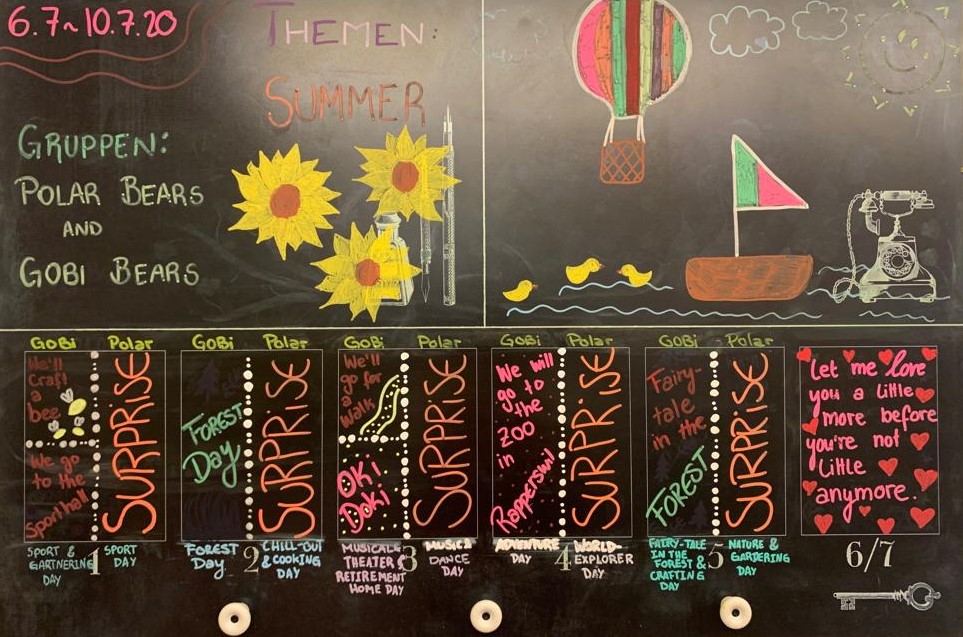 6.7~10.7.20
THEMEN:
SUMMER
GRUPPEN:
POLAR BEARS
AND
GOBI BEARS
GOBi Polar
We'll
Craft
a
bee
We go
to the
Sporthall
SURPRiSE
SPORT &
GARTNERING
DAY
1
SPORT
DAY
GOBi Polar
FOREST
Day
SURPRiSE
FOREST
Day
2
CHILL-OUT
& COOKING
DAY
GOBi Polar
We'll
go for
a
Walk
OKi
Doki
SURPRiSE
MUSICALE
THEATER &
RETIREMENT
HOME DAY
3
MUSIC &
DANCE
DAY
GOBi Polar
We will
go to
the
ZOO
in
Rapperswil
SURPRiSE
ADVENTURE
DAY
4
WORLD-
EXPLORER
DAY
GOBi Polar
Fairy-
tale
in the
FOREST
SURPRiSE
FAIRY-TALE
IN THE
FOREST &
CRAFTING
DAY
5
NATURE &
GARDERING
DAY
Let me love
you a little
more before
you're not
little
anymore.
6/7